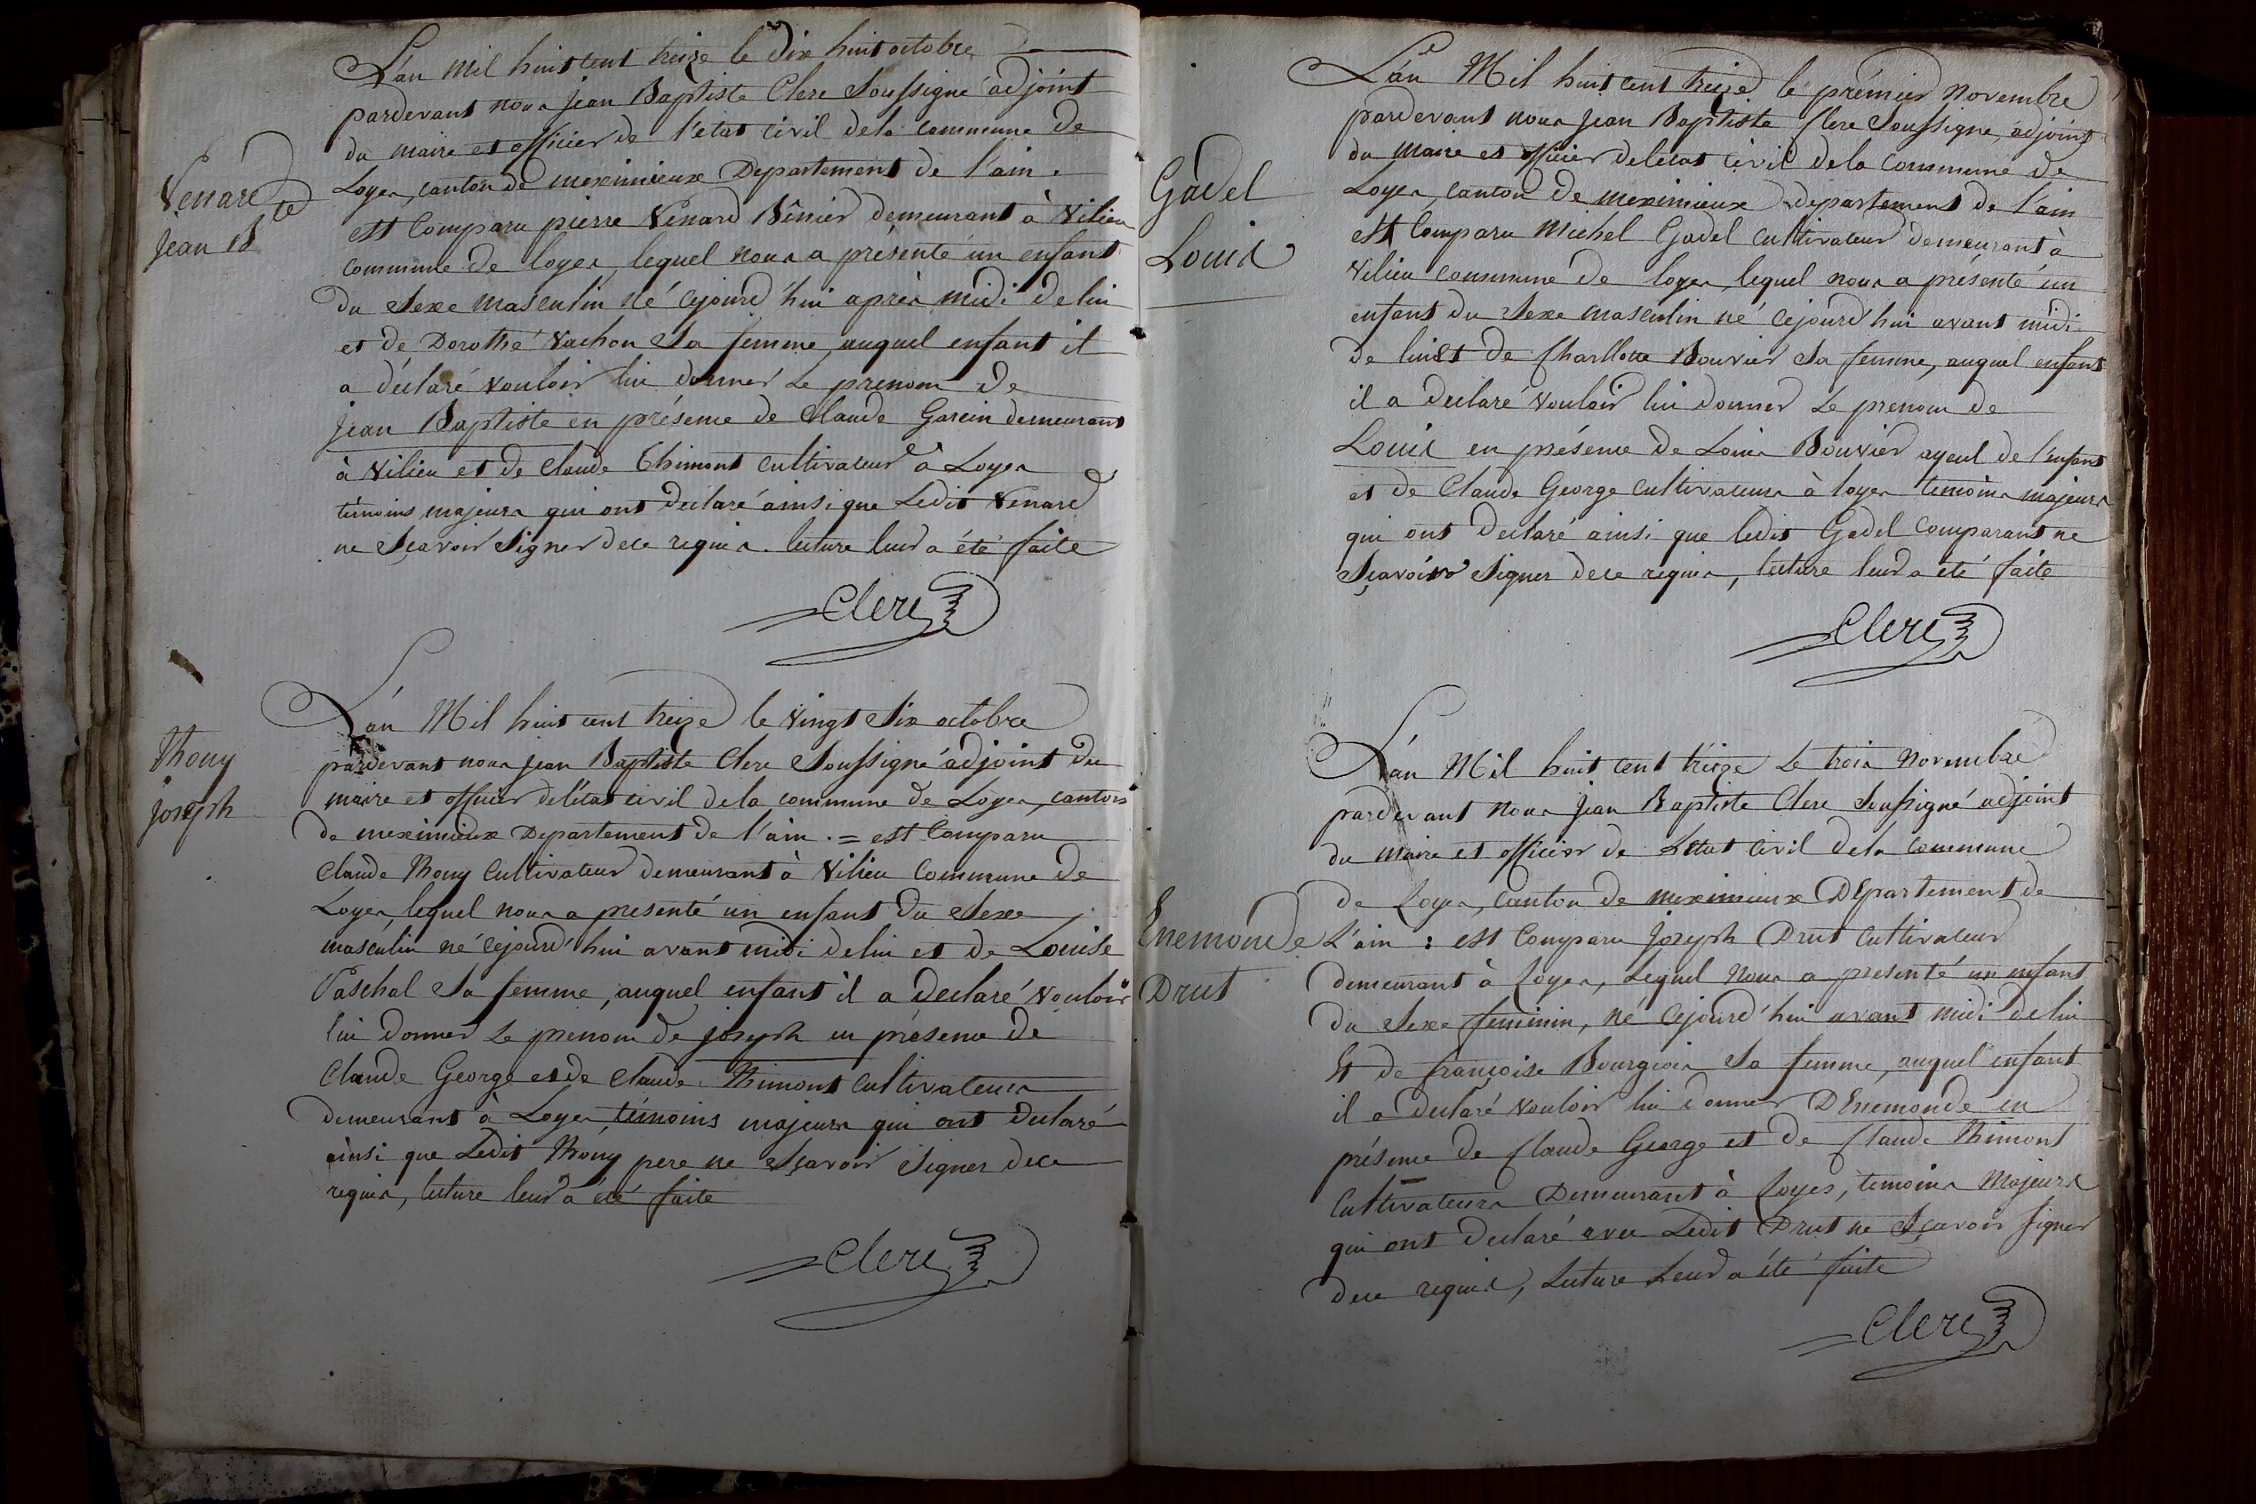 Venard
Jean Bte
L'an mil huit cent treize le dix huit octobre
pardevant nous jean Baptiste Clere Soussigné adjoint
du maire et officier de l'etat civil dela commune de
Loyes, canton de meximieux Departement de l'ain.
est Comparu pierre Venard demeurant à Vilieu
commune de loyes, lequel nous a présenté un enfant
du Sexe masculin né cejourd'hui après midi de lui
et de Dorothé Vachon Sa femme, auquel enfant il
a déclaré vouloir lui donner Le prenom de
jean Baptiste en présence de Claude Garcin demeurant
à Vilieu et de claude Thimont cultivateur à Loyes
témoins majeurs qui ont declaré ainsi que Ledit Venard
ne Sçavoir Signer dece requis. lecture leur a été faite
Clere
Thony
joseph
L'an Mil huit cent treize le vingt Six octobre
pardevant nous jean Baptiste Clere Soussigné adjoint du
maire et officier del'état civil dela commune de Loyes, canton
de meximieux Departement de l'ain .= est Comparu
Claude Thony Cultivateur demeurant à Vilieu Commune de
Loyes, lequel nous a presenté un enfant du Sexe
masculin né cejourd'hui avant midi de lui et de Louise
Paschal Sa femme, auquel enfant il a declaré vouloir
lui donner Le prenom de joseph en présence de
Claude George et de claude Thimont cultivateurs
demeurant à Loyes témoins majeurs qui ont declaré
ainsi que Ledit Thony pere ne Sçavoir Signer dece
requis, lecture leur a été faite
Clere
Gadel
Louis
L'an Mil huit cent treize le prémier Novembre
pardevant nous jean Baptiste Clere Soussigné, adjoint
du Maire et officier deletat civil dela commune de
Loyes, canton de meximieux Departement de l'ain
est Comparu Michel Gadel cultivateur demeurant à
Vilieu commune de loyes, lequel nous a présenté un
enfant du Sexe masculin né cejourd'hui avant midi
de lui Et de Charllotte Bouvier Sa femme, auquel enfant
il a declaré vouloir lui donner Le prenom de
Louis en présence de Louis Bouvier ayeul de l'enfant
et de Claude George cultivateurs à loyes temoins majeurs
qui ont declaré ainsi que ledit Gadel comparant ne
Sçavoir Signer dece requis, lecture leur a été faite
Clere
Enemonde
Drut
L'an Mil huit cent treize Le trois Novembre
pardevant nous jean Baptiste Clere Soussigné adjoint
du maire et officier de L'etat civil dela commune
de Loyes, canton de meximieux DEpartement de
L'ain : est Comparu joseph Drut cultivateur
demeurant à Loyes, Lequel nous a presenté un enfant
du Sexe feminin, né cejourd'hui avant midi de lui
Et de françoise Bourgeois Sa femme, auquel enfant
il a declaré vouloir lui donner DEnemonde en
présence de Claude George et de Claude Thimont
Cultivateurs Demeurant à Loyes, temoins Majeurs
qui ont declaré avec Ledit Drut ne Sçavoir Signer
dece requis, Lecture Leur a été faite
Clere